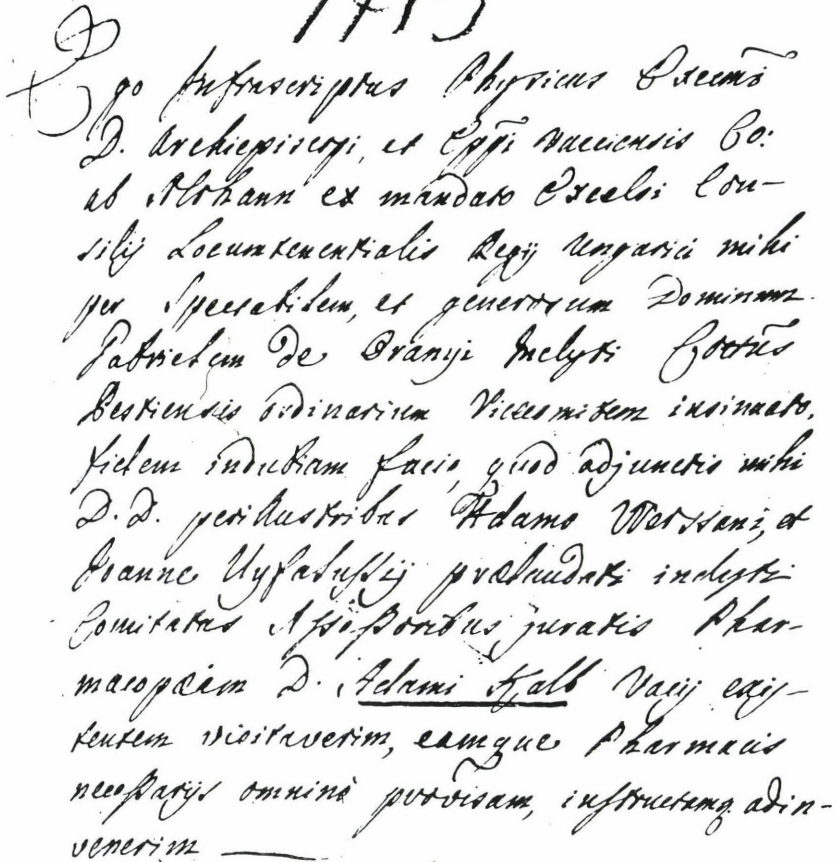 Ego Infrascriptus Physicus Excemi
D. Archiepiscopi, et Eppi Vacciensis Co:
ab Althann ex mandato Excelsi Con-
silij Locumtenentialis Regij Ungarici mihi
per Spectabilem, et generosum Dominum
Gabrielem de Oranyi Inclyti Cottus
Pestiensis ordinarium Vicecomitem insinuato,
fidem indubiam facio, quod adjunctis mihi
D. D. perillustribus Adamo et
Joanne Uyfalussy prælaudati inclyti
Comitatus Assessoribus juratis Phar-
macopæam D. Adami Kalb Vacij exis-
tentem visitaverim, eamque Pharmacis
necessarijs omninò provisam, instructamq. adin-
venerim